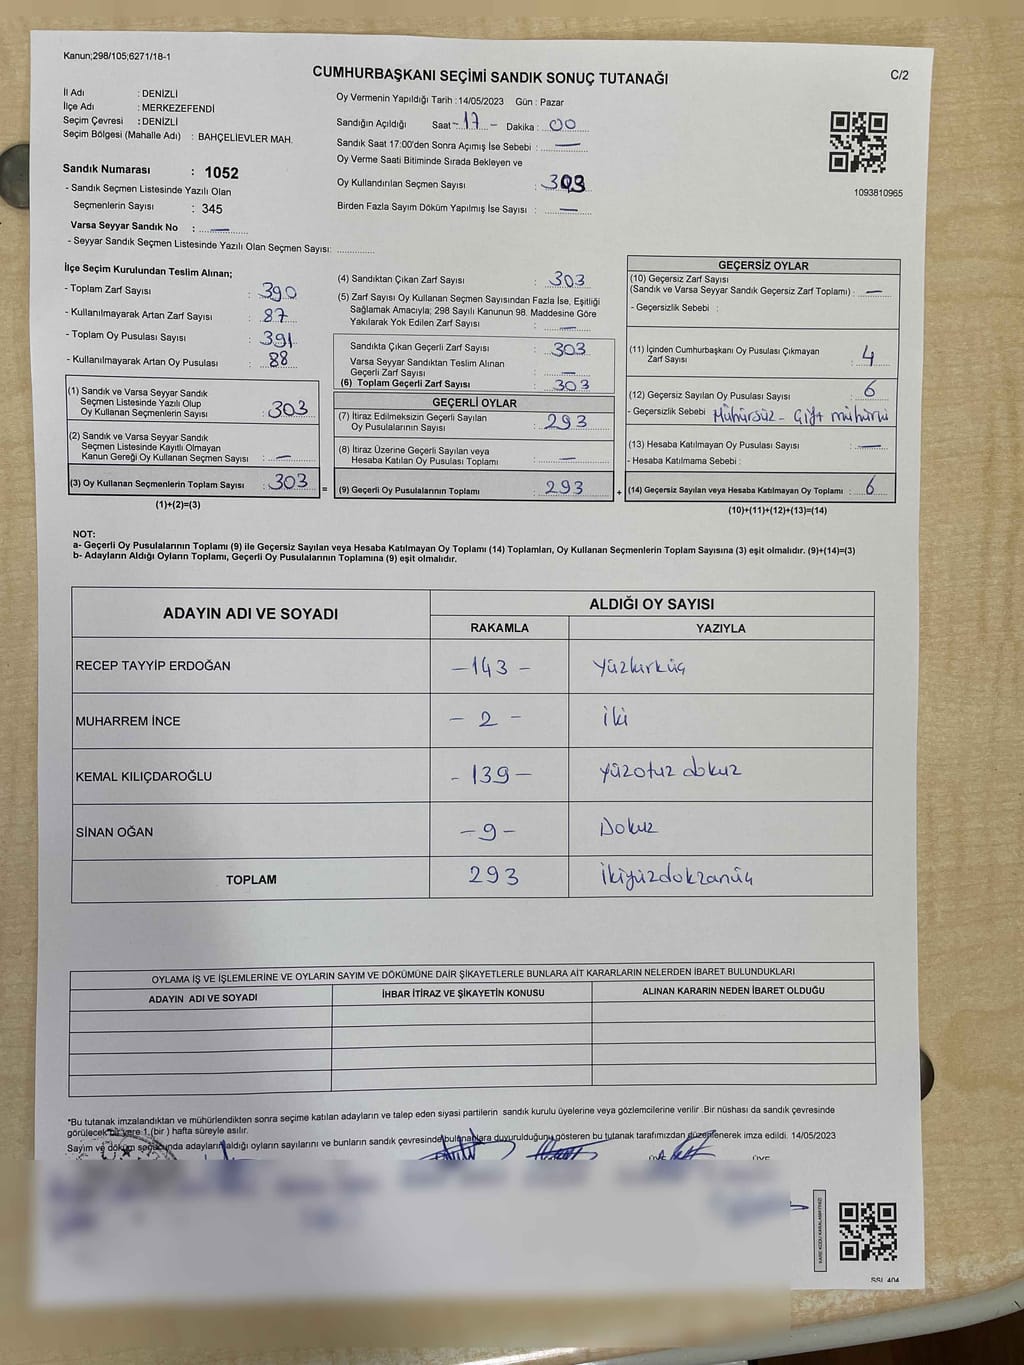 Kanun;298/105;6271/18-1
CUMHURBAŞKANI SEÇİMİ SANDIK SONUÇ TUTANAĞI
C/2
İl Adı : DENİZLİ
İlçe Adı : MERKEZEFENDİ
Seçim Çevresi : DENİZLİ
Seçim Bölgesi (Mahalle Adı) : BAHÇELİEVLER MAH.
Sandık Numarası : 1052
- Sandık Seçmen Listesinde Yazılı Olan
Seçmenlerin Sayısı : 345
Varsa Seyyar Sandık No : —
- Seyyar Sandık Seçmen Listesinde Yazılı Olan Seçmen Sayısı: ............
Oy Vermenin Yapıldığı Tarih : 14/05/2023 Gün : Pazar
Sandığın Açıldığı Saat - 17 - Dakika : 00
Sandık Saat 17:00'den Sonra Açımış İse Sebebi : —
Oy Verme Saati Bitiminde Sırada Bekleyen ve
Oy Kullandırılan Seçmen Sayısı : 303
Birden Fazla Sayım Döküm Yapılmış İse Sayısı : —
1093810965
İlçe Seçim Kurulundan Teslim Alınan;
- Toplam Zarf Sayısı : 390
- Kullanılmayarak Artan Zarf Sayısı : 87
- Toplam Oy Pusulası Sayısı : 391
- Kullanılmayarak Artan Oy Pusulası : 88
(1) Sandık ve Varsa Seyyar Sandık
Seçmen Listesinde Yazılı Olup
Oy Kullanan Seçmenlerin Sayısı : 303
(2) Sandık ve Varsa Seyyar Sandık
Seçmen Listesinde Kayıtlı Olmayan
Kanun Gereği Oy Kullanan Seçmen Sayısı : —
(3) Oy Kullanan Seçmenlerin Toplam Sayısı : 303 =
(1)+(2)=(3)
(4) Sandıktan Çıkan Zarf Sayısı : 303
(5) Zarf Sayısı Oy Kullanan Seçmen Sayısından Fazla İse, Eşitliği
Sağlamak Amacıyla; 298 Sayılı Kanunun 98. Maddesine Göre
Yakılarak Yok Edilen Zarf Sayısı : —
Sandıkta Çıkan Geçerli Zarf Sayısı : 303
Varsa Seyyar Sandıktan Teslim Alınan
Geçerli Zarf Sayısı : —
(6) Toplam Geçerli Zarf Sayısı : 303
GEÇERLİ OYLAR
(7) İtiraz Edilmeksizin Geçerli Sayılan
Oy Pusulalarının Sayısı : 293
(8) İtiraz Üzerine Geçerli Sayılan veya
Hesaba Katılan Oy Pusulası Toplamı : —
(9) Geçerli Oy Pusulalarının Toplamı : 293 +
GEÇERSİZ OYLAR
(10) Geçersiz Zarf Sayısı
(Sandık ve Varsa Seyyar Sandık Geçersiz Zarf Toplamı) : —
- Geçersizlik Sebebi :
(11) İçinden Cumhurbaşkanı Oy Pusulası Çıkmayan
Zarf Sayısı : 4
(12) Geçersiz Sayılan Oy Pusulası Sayısı : 6
- Geçersizlik Sebebi Mühürsüz - Çift mühürlü
(13) Hesaba Katılmayan Oy Pusulası Sayısı : —
- Hesaba Katılmama Sebebi :
(14) Geçersiz Sayılan veya Hesaba Katılmayan Oy Toplamı : 6
(10)+(11)+(12)+(13)=(14)
NOT:
a- Geçerli Oy Pusulalarının Toplamı (9) ile Geçersiz Sayılan veya Hesaba Katılmayan Oy Toplamı (14) Toplamları, Oy Kullanan Seçmenlerin Toplam Sayısına (3) eşit olmalıdır. (9)+(14)=(3)
b- Adayların Aldığı Oyların Toplamı, Geçerli Oy Pusulalarının Toplamına (9) eşit olmalıdır.
ADAYIN ADI VE SOYADI ALDIĞI OY SAYISI
RAKAMLA YAZIYLA
RECEP TAYYİP ERDOĞAN -143- yüzkırküç
MUHARREM İNCE - 2 - iki
KEMAL KILIÇDAROĞLU -139- yüzotuz dokuz
SİNAN OĞAN -9- Dokuz
TOPLAM 293 ikiyüzdokzanüç
OYLAMA İŞ VE İŞLEMLERİNE VE OYLARIN SAYIM VE DÖKÜMÜNE DAİR ŞİKAYETLERLE BUNLARA AİT KARARLARIN NELERDEN İBARET BULUNDUKLARI
ADAYIN ADI VE SOYADI İHBAR İTİRAZ VE ŞİKAYETİN KONUSU ALINAN KARARIN NEDEN İBARET OLDUĞU
*Bu tutanak imzalandıktan ve mühürlendikten sonra seçime katılan adayların ve talep eden siyasi partilerin sandık kurulu üyelerine veya gözlemcilerine verilir .Bir nüshası da sandık çevresinde
görülecek bir yere 1 (bir ) hafta süreyle asılır.
Sayım ve döküm sonucunda adayların aldığı oyların sayılarını ve bunların sandık çevresinde bulunanlara duyurulduğunu gösteren bu tutanak tarafımızdan düzenlenerek imza edildi. 14/05/2023
ÜYE